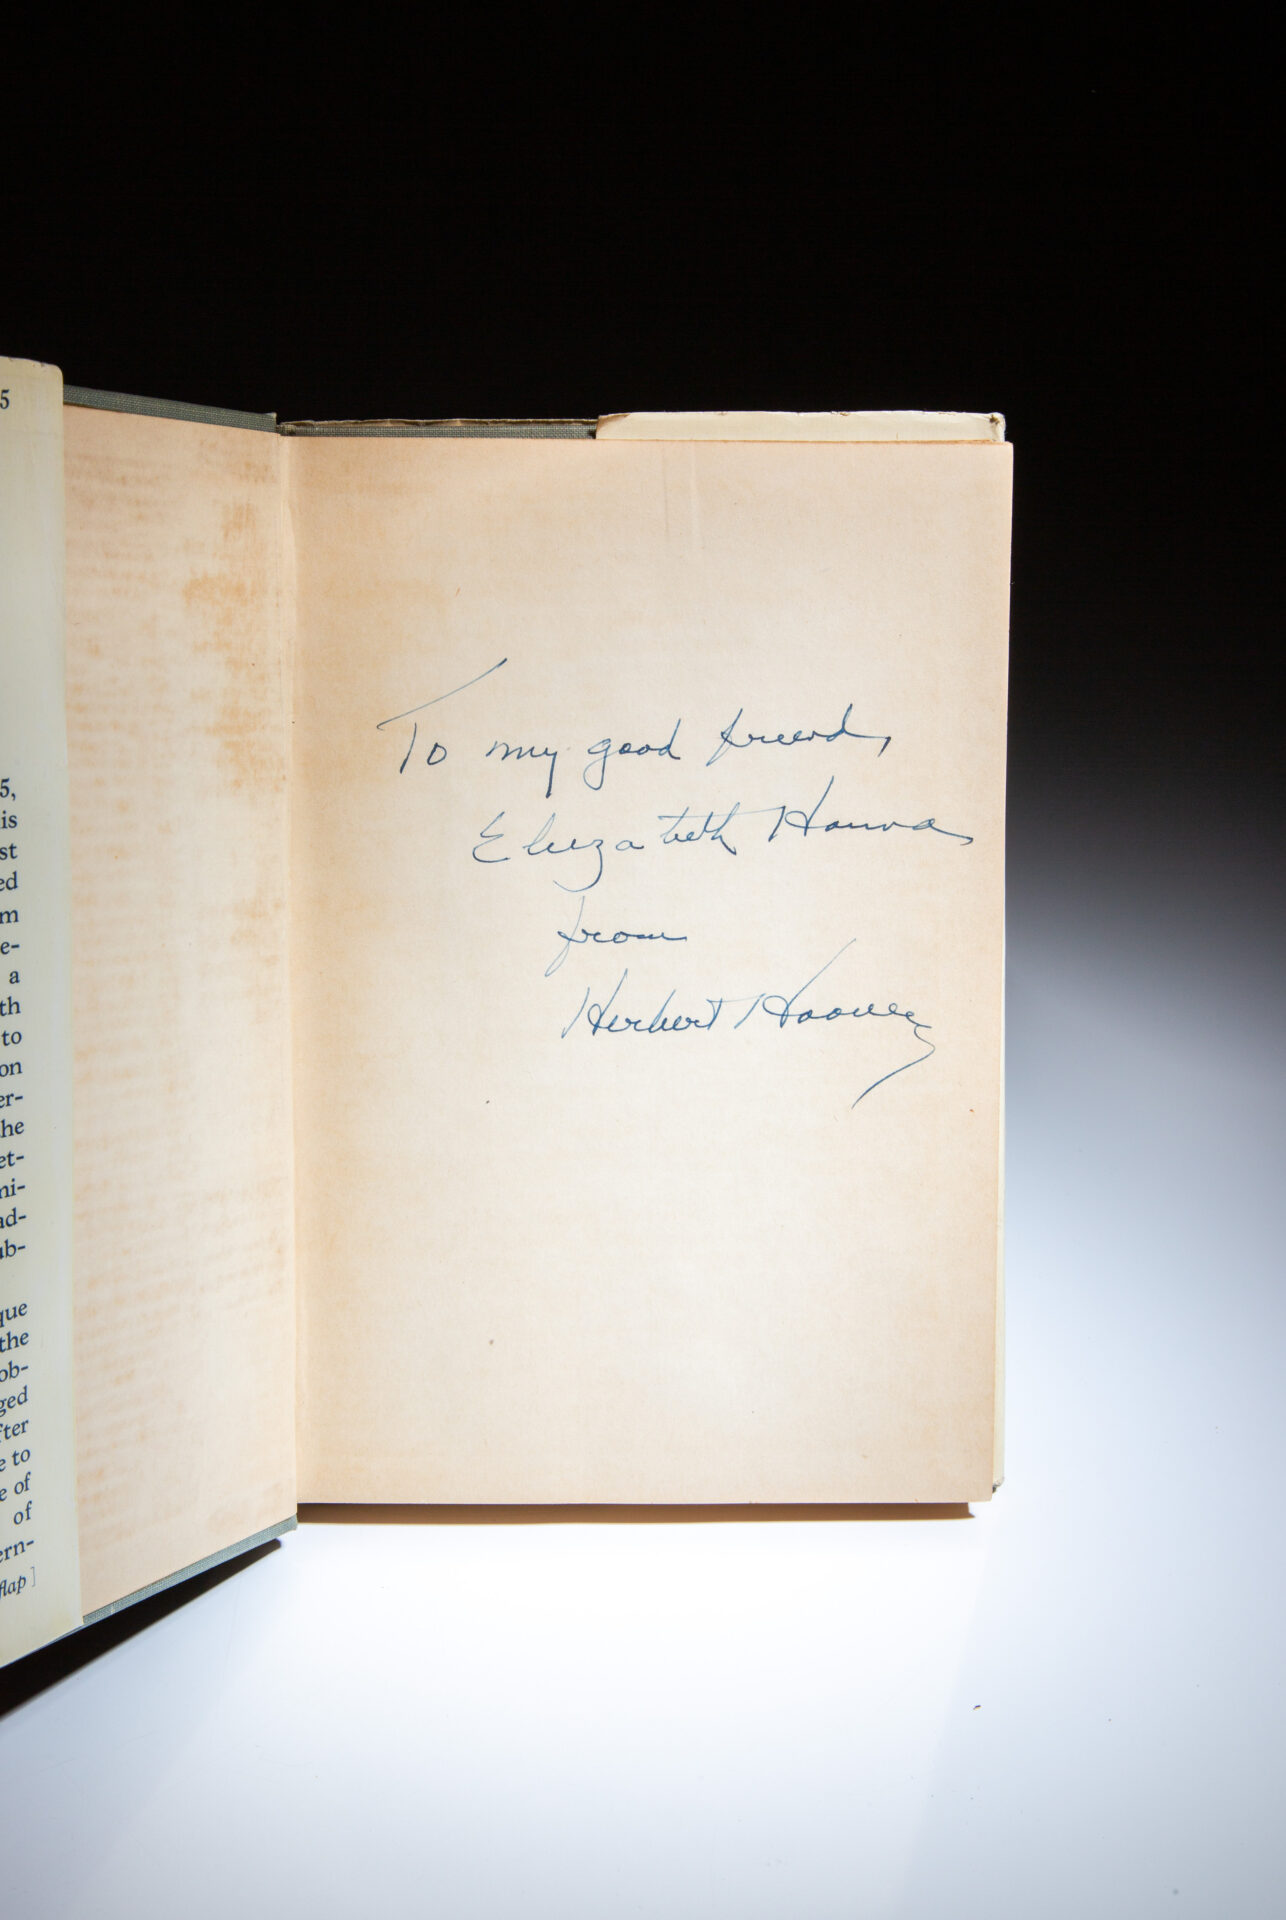 5
5,
is
st
ed
m
e-
a
th
to
on
er-
the
et-
mi-
ad-
ub-
que
the
ob-
ged
fter
e to
e of
of
ern-
flap]
To my good friend,
Elizabeth Hanna
from
Herbert Hoover